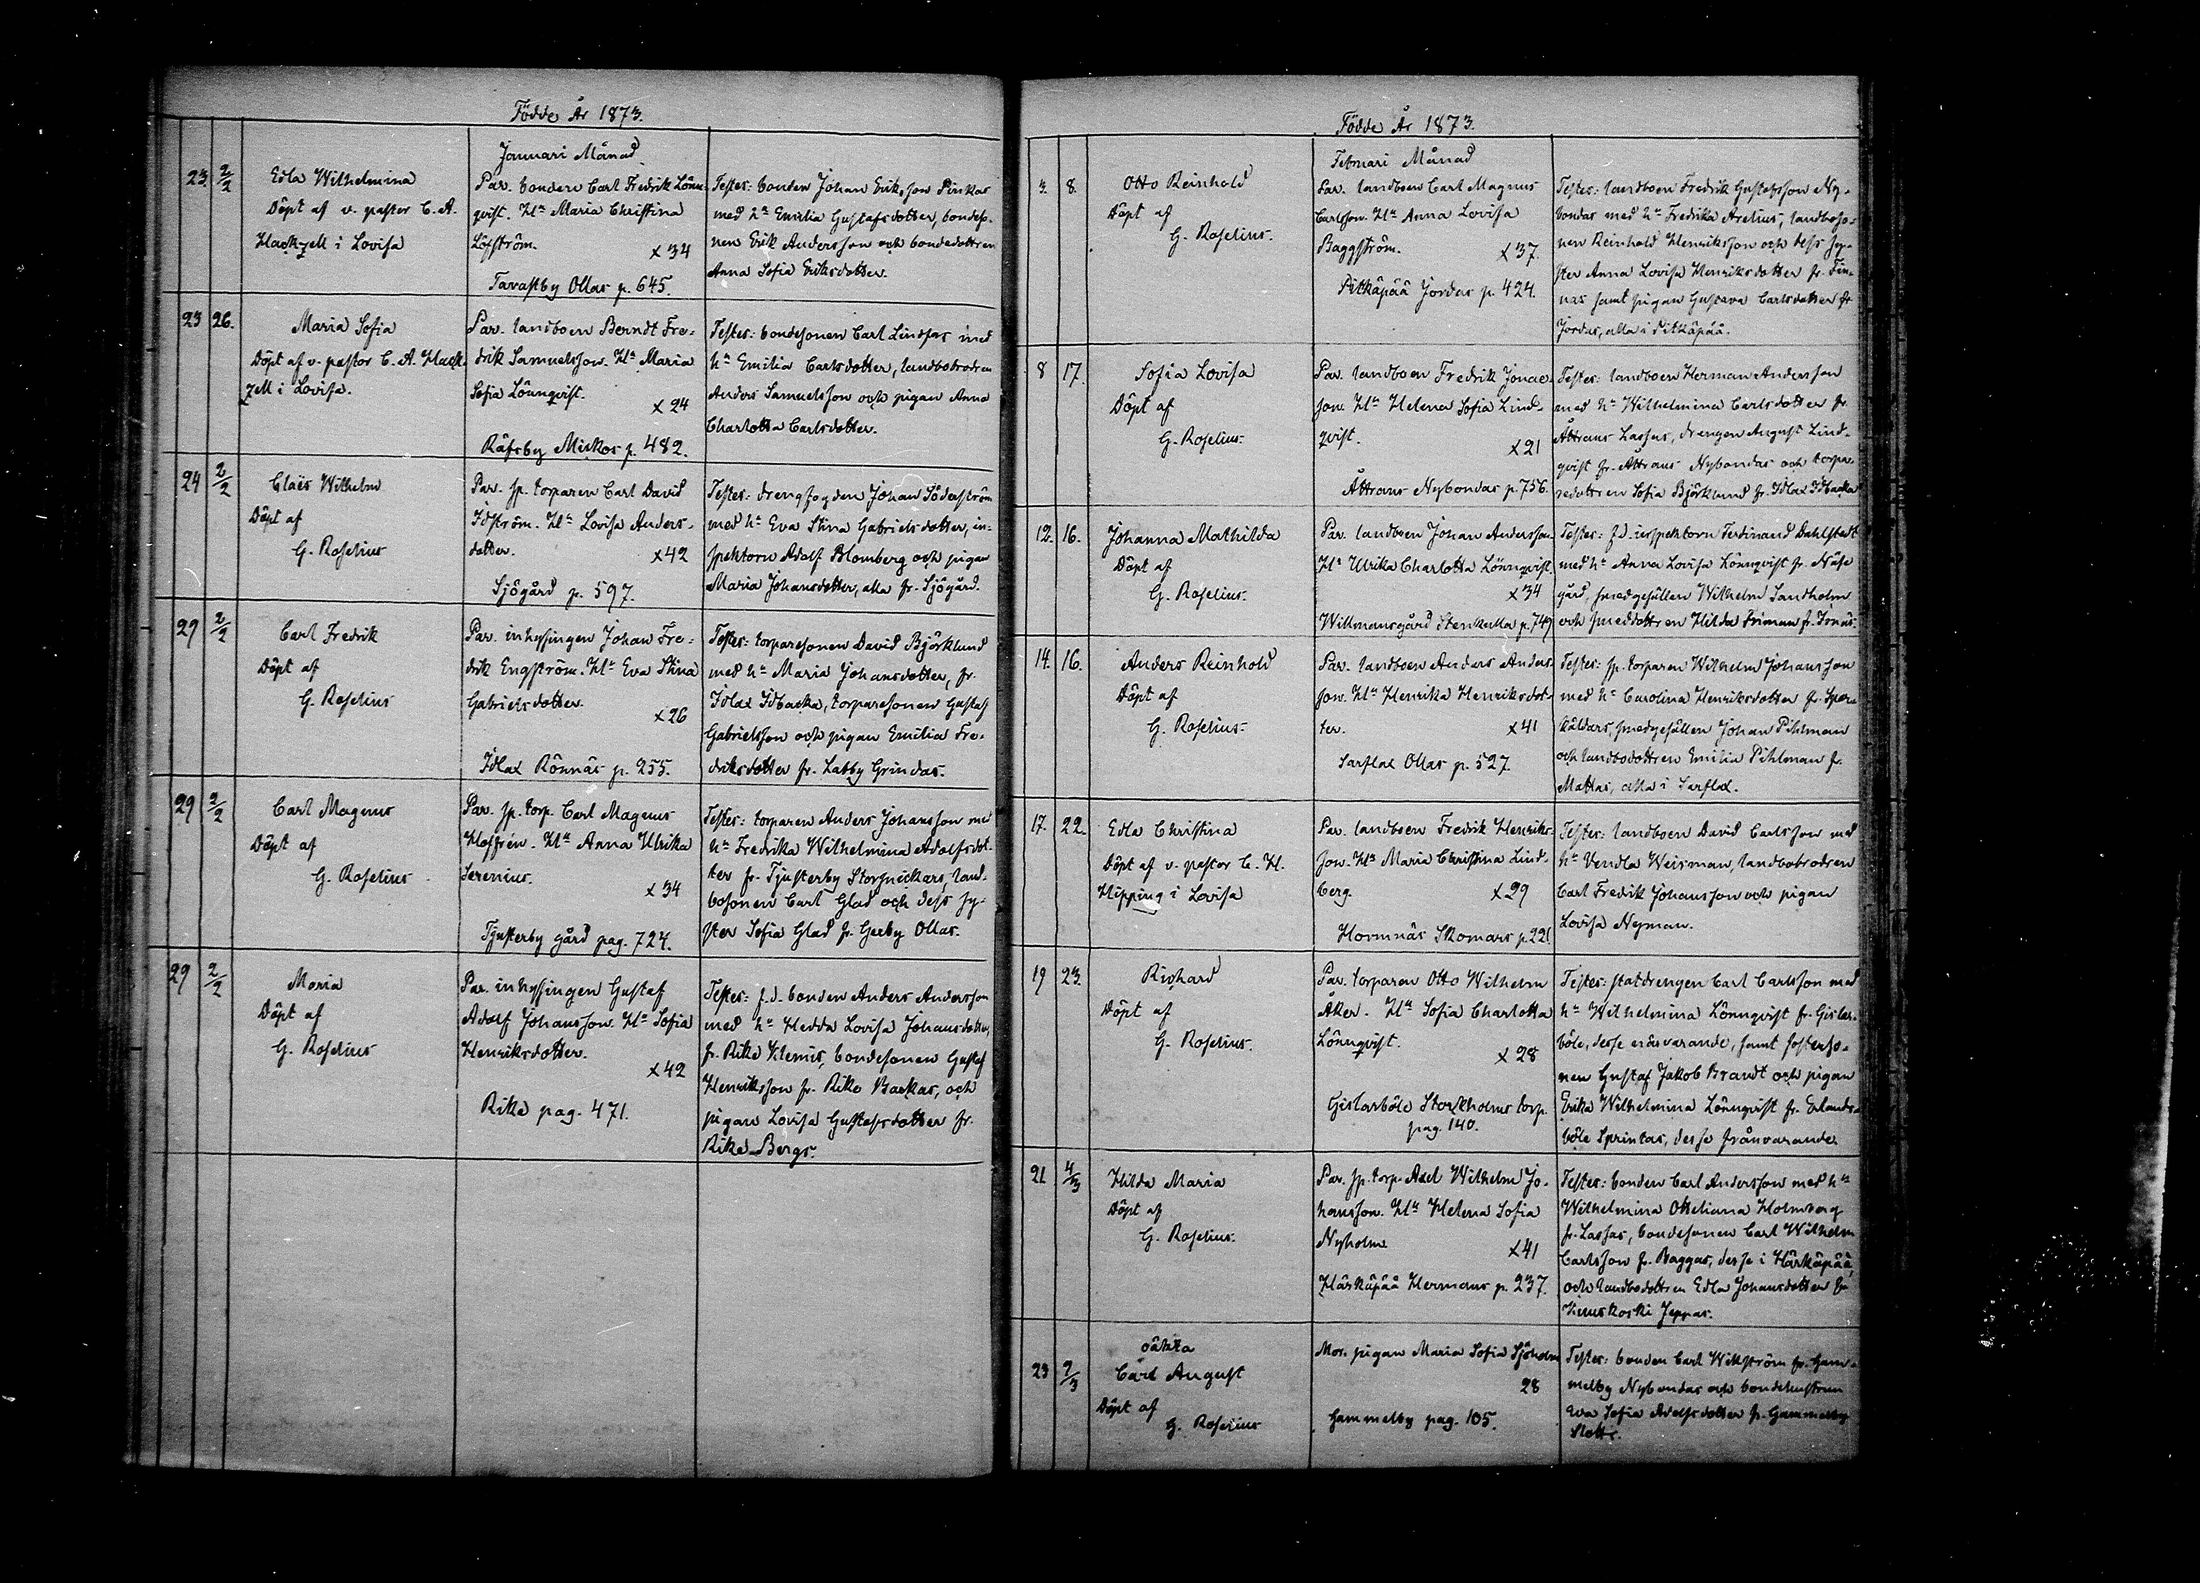 Födde År 1873.
Januari Månad
23. 2/2
Edla Wilhelmina
Döpt af v. pastor C. A.
Hackzell i Lovisa
Par. bonden Carl Fredrik Lönn-
qvist. Hu Maria Christina
Löfström.
x 34
Tavastby Ollas p. 645.
Testes: bonden Johan Eriksson Pinkas
med hu Emilia Gustafsdotter, bondeso-
nen Erik Andersson och bondedottren
Anna Sofia Eriksdotter.
23 26.
Maria Sofia
Döpt af v. pastor C. A. Hack-
zell i Lovisa.
Par. landboen Berndt Fre-
drik Samuelsson. Hu Maria
Sofia Lönnqvist.
x 24
Räfsby Mickos p. 482.
Testes: bondesonen Carl Lindfors med
hu Emilia Carlsdotter, landbobrodren
Anders Samuelsson och pigan Anna
Charlotta Carlsdotter.
24 2/2
Claës Wilhelm
Döpt af
G. Roselius
Par. sp. torparen Carl David
Idström. Hu Lovisa Anders-
dotter.
x 42
Sjögård p. 597.
Testes: drengfogden Johan Söderström
med hu Eva Stina Gabrielsdotter, in-
spektorn Adolf Blomberg och pigan
Maria Johansdotter, alla fr. Sjögård.
29 2/2
Carl Fredrik
Döpt af
G. Roselius
Par. inhysingen Johan Fre-
drik Engström. Hu Eva Stina
Gabrielsdotter.
x 26
Idlax Rönnäs p. 255.
Testes: torparesonen David Björklund
med hu Maria Johansdotter, fr.
Idlax Idbacka, torparesonen Gustaf
Gabrielsson och pigan Emilia Fre-
driksdotter fr. Labby Grindas.
29 2/2
Carl Magnus
Döpt af
G. Roselius.
Par. sp. torp. Carl Magnus
Hoffrén. Hu Anna Ulrika
Serenius.
x 34
Tjusterby gård pag. 724.
Testes: torparen Anders Johansson med
hu Fredrika Wilhelmina Adolfsdot-
ter fr. Tjusterby Storsnickars, land-
bosonen Carl Glad och dess sy-
ster Sofia Glad fr. Gerby Ollas.
29 2/2
Maria
Döpt af
G. Roselius
Par. inhysingen Gustaf
Adolf Johansson. Hu Sofia
Henriksdotter.
x 42
Rike pag. 471.
Testes: f.d. bonden Anders Andersson
med hu Hedda Lovisa Johansdotter,
fr. Rike Klemis, bondesonen Gustaf
Henriksson fr. Rike Backas, och
pigan Lovisa Gustafsdotter fr.
Rike Bergs.
Födde År 1873.
Februari Månad
3. 8.
Otto Reinhold
Döpt af
G. Roselius.
Par. landboen Carl Magnus
Carlsson. Hu Anna Lovisa
Baggström.
x 37.
Pitkäpää Jordas p. 424.
Testes: landboen Fredrik Gustafsson Ny-
bondas med hu Fredrika Arelius, landboso-
nen Reinhold Henriksson och dess sy-
ster Anna Lovisa Henriksdotter fr. Fin-
nas samt pigan Gustava Carlsdotter fr
Jordas, alla i Pitkäpää.
8 17.
Sofia Lovisa
Döpt af
G. Roselius.
Par. landboen Fredrik Jonae-
son. Hu Helena Sofia Lind-
qvist.
x 21
Åttraus Nybondas p. 756.
Testes: landboen Herman Andersson
med hu Wilhelmina Carlsdotter fr.
Åttraus Lassas, drengen August Lind-
qvist fr. Åttraus Nybondas och torpa-
redottren Sofia Björklund fr. Idlax Idbacka
12. 16.
Johanna Mathilda
Döpt af
G. Roselius.
Par. landboen Johan Andersson
Hu Ulrika Charlotta Lönnqvist.
x 34
Willmansgård Stenkulla p. 749
Testes: f.d. inspektorn Ferdinand Dahlstedt
med hu Anna Lovisa Lönnqvist fr. Näse
gård, smedgesällen Wilhelm Sandholm
och smeddottren Hilda Friman fr. Isnäs.
14. 16.
Anders Reinhold
Döpt af
G. Roselius.
Par. landboen Anders Anders-
son. Hu Henrika Henriksdot-
ter.
x 41
Sarflax Ollas p. 527.
Testes: sp. torparen Wilhelm Johansson
med hu Carolina Henriksdotter fr.
smedgesällen Johan Pihlman
och landbodottren Emilia Pihlman fr.
Mattas, alla i Sarflax.
17. 22.
Edla Christina
Döpt af v. pastor C. H.
Hipping i Lovisa
Par. landboen Fredrik Henriks-
son. Hu Maria Christina Lind-
berg.
x 29
Hommnäs Skomars p. 221
Testes: landboen David Carlsson med
hu Vendla Weisman, landbobrodren
Carl Fredrik Johansson och pigan
Lovisa Nyman.
19 23.
Richard
Döpt af
G. Roselius.
Par. torparen Otto Wilhelm
Åker. Hu Sofia Charlotta
Lönnqvist.
x 28
Gislarböle Storkholms torp.
pag. 140.
Testes: statdrengen Carl Carlsson med
hu Wilhelmina Lönnqvist fr. Gislar-
böle, desse närvarande, samt fosterso-
nen Gustaf Jakob Brandt och pigan
Erika Wilhelmina Lönnqvist fr. Erlands-
böle Sprintas, desse frånvarande
21 4/3
Hilda Maria
Döpt af
G. Roselius.
Par. sp. torp. Axel Wilhelm Jo-
hansson. Hu Helena Sofia
Nyholm
x 41
Härkäpää Hermans p. 237.
Testes: bonden Carl Andersson med hu
Wilhelmina Otteliana Holmberg
fr. Lassas, bondesonen Carl Wilhelm
Carlsson fr. Baggas, desse i Härkäpää,
och landbodottren Edla Johansdotter fr
Kuuskoski Jeppas.
23 2/3
oäkta
Carl August
Döpt af
G. Roselius
Mor. pigan Maria Sofia Sjöholm
28
Gammelby pag. 105.
Testes: bonden Carl Wikström fr. Gam-
melby Nybondas och bondehustrun
Eva Sofia Adolfsdotter fr. Gammelby
Slotts.